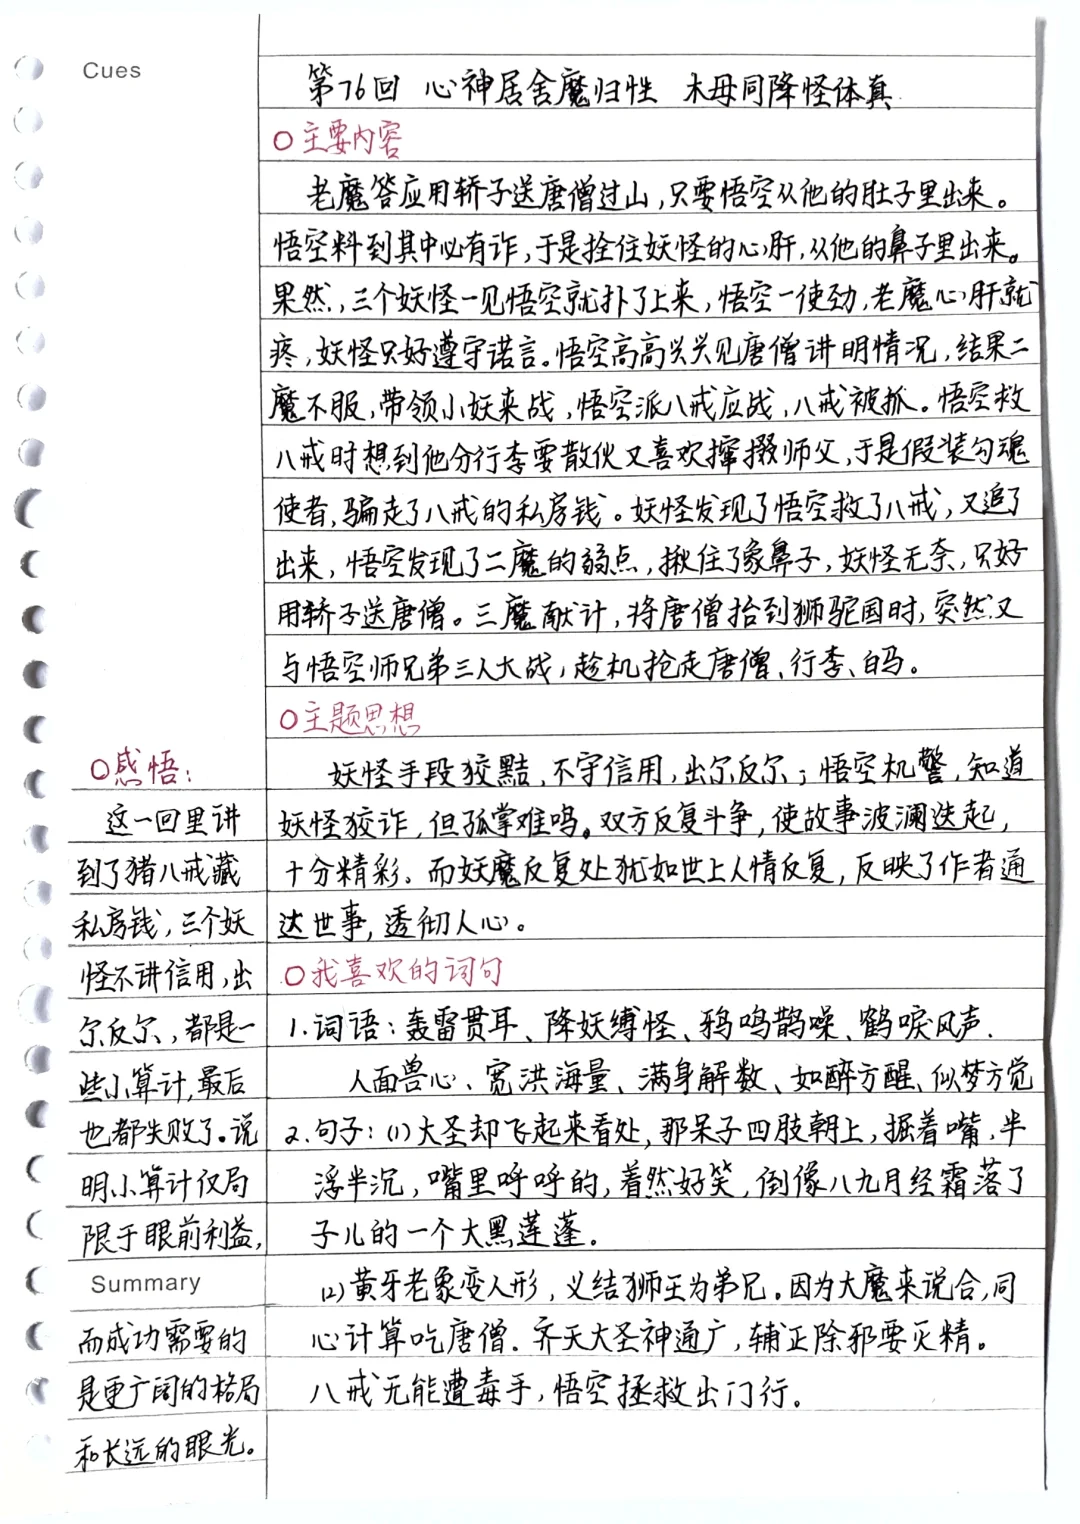 Cues
第76回 心神居舍魔归性 木母同降怪体真
○主要内容
老魔答应用轿子送唐僧过山,只要悟空从他的肚子里出来。
悟空料到其中必有诈,于是拴住妖怪的心肝,从他的鼻子里出来。
果然,三个妖怪一见悟空就扑了上来,悟空一使劲,老魔心肝就
疼,妖怪只好遵守诺言。悟空高高兴兴见唐僧讲明情况,结果二
魔不服,带领小妖来战,悟空派八戒应战,八戒被抓。悟空救
八戒时想到他分行李要散伙又喜欢撺掇师父,于是假装勾魂
使者,骗走了八戒的私房钱。妖怪发现了悟空救了八戒,又追了
出来,悟空发现了二魔的弱点,揪住了象鼻子,妖怪无奈,只好
用轿子送唐僧。三魔献计,将唐僧抬到狮驼国时,突然又
与悟空师兄弟三人大战,趁机抢走唐僧、行李、白马。
○主题思想
妖怪手段狡黠、不守信用,出尔反尔;悟空机警,知道
妖怪狡诈,但孤掌难鸣。双方反复斗争,使故事波澜迭起,
十分精彩。而妖魔反复处犹如世上人情反复,反映了作者通
达世事,透彻人心。
○我喜欢的词句
1.词语:轰雷贯耳、降妖缚怪、鸦鸣鹊噪、鹤唳风声、
人面兽心、宽洪海量、满身解数、如醉方醒、似梦方觉
2.句子:(1)大圣却飞起来看处,那呆子四肢朝上,掘着嘴,半
浮半沉,嘴里呼呼的,着然好笑,倒像八九月经霜落了
子儿的一个大黑莲蓬。
(2)黄牙老象变人形,义结狮王为弟兄。因为大魔来说合,同
心计算吃唐僧。齐天大圣神通广,辅正除邪要灭精。
八戒无能遭毒手,悟空拯救出门行。
○感悟:
这一回里讲
到了猪八戒藏
私房钱,三个妖
怪不讲信用,出
尔反尔,都是一
些小算计,最后
也都失败了。说
明小算计仅局
限于眼前利益,
Summary
而成功需要的
是更广阔的格局
和长远的眼光。